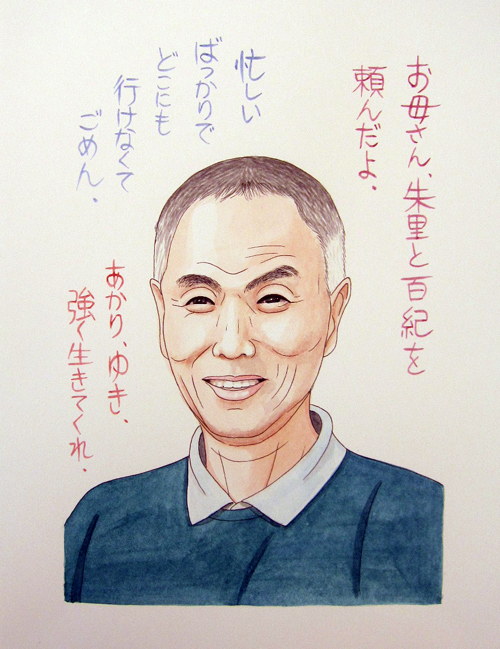 お母さん、朱里と百紀を
頼んだよ、
忙しい
ばっかりで
どこにも
行けなくて
ごめん、
あかり、ゆき、
強く生きてくれ、